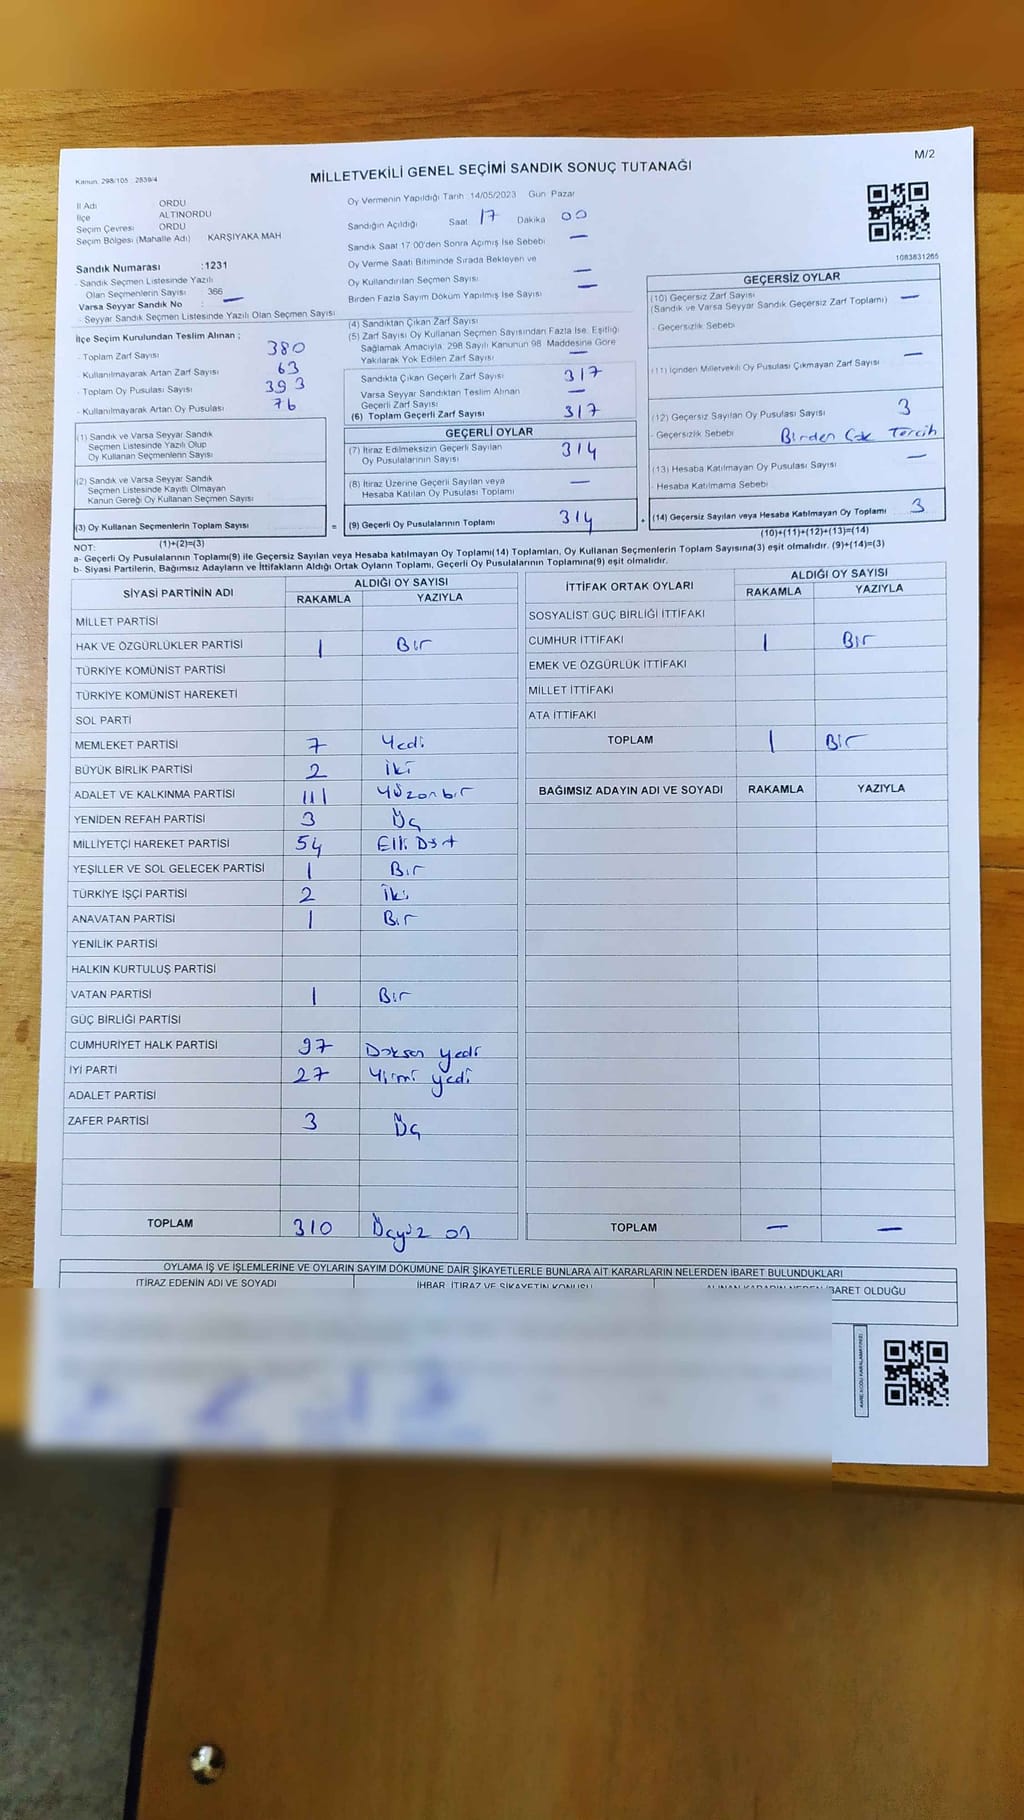 M/2
Kanun: 298/105 : 2839/4
MİLLETVEKİLİ GENEL SEÇİMİ SANDIK SONUÇ TUTANAĞI
İl Adı ORDU
İlçe ALTINORDU
Seçim Çevresi ORDU
Seçim Bölgesi (Mahalle Adı) KARŞIYAKA MAH
Sandık Numarası : 1231
- Sandık Seçmen Listesinde Yazılı
Olan Seçmenlerin Sayısı : 366
Varsa Seyyar Sandık No : —
- Seyyar Sandık Seçmen Listesinde Yazılı Olan Seçmen Sayısı
İlçe Seçim Kurulundan Teslim Alınan ;
- Toplam Zarf Sayısı 380
- Kullanılmayarak Artan Zarf Sayısı 63
- Toplam Oy Pusulası Sayısı 393
- Kullanılmayarak Artan Oy Pusulası 76
(1) Sandık ve Varsa Seyyar Sandık
Seçmen Listesinde Yazılı Olup
Oy Kullanan Seçmenlerin Sayısı
(2) Sandık ve Varsa Seyyar Sandık
Seçmen Listesinde Kayıtlı Olmayan
Kanun Gereği Oy Kullanan Seçmen Sayısı
(3) Oy Kullanan Seçmenlerin Toplam Sayısı =
(1)+(2)=(3)
Oy Vermenin Yapıldığı Tarih 14/05/2023 Gün Pazar
Sandığın Açıldığı Saat 17 Dakika 00
Sandık Saat 17 00'den Sonra Açılmış İse Sebebi —
Oy Verme Saati Bitiminde Sırada Bekleyen ve
Oy Kullandırılan Seçmen Sayısı —
Birden Fazla Sayım Döküm Yapılmış İse Sayısı —
(4) Sandıktan Çıkan Zarf Sayısı
(5) Zarf Sayısı Oy Kullanan Seçmen Sayısından Fazla İse, Eşitliği
Sağlamak Amacıyla, 298 Sayılı Kanunun 98. Maddesine Göre
Yakılarak Yok Edilen Zarf Sayısı —
Sandıkta Çıkan Geçerli Zarf Sayısı 317
Varsa Seyyar Sandıktan Teslim Alınan
Geçerli Zarf Sayısı —
(6) Toplam Geçerli Zarf Sayısı 317
GEÇERLİ OYLAR
(7) İtiraz Edilmeksizin Geçerli Sayılan
Oy Pusulalarının Sayısı 314
(8) İtiraz Üzerine Geçerli Sayılan veya
Hesaba Katılan Oy Pusulası Toplamı —
(9) Geçerli Oy Pusulalarının Toplamı 314 +
1083831265
GEÇERSİZ OYLAR
(10) Geçersiz Zarf Sayısı —
(Sandık ve Varsa Seyyar Sandık Geçersiz Zarf Toplamı)
- Geçersizlik Sebebi
(11) İçinden Milletvekili Oy Pusulası Çıkmayan Zarf Sayısı —
(12) Geçersiz Sayılan Oy Pusulası Sayısı 3
- Geçersizlik Sebebi Birden Çok Tercih
(13) Hesaba Katılmayan Oy Pusulası Sayısı —
- Hesaba Katılmama Sebebi
(14) Geçersiz Sayılan veya Hesaba Katılmayan Oy Toplamı 3
(10)+(11)+(12)+(13)=(14)
NOT:
a- Geçerli Oy Pusulalarının Toplamı(9) ile Geçersiz Sayılan veya Hesaba katılmayan Oy Toplamı(14) Toplamları, Oy Kullanan Seçmenlerin Toplam Sayısına(3) eşit olmalıdır. (9)+(14)=(3)
b- Siyasi Partilerin, Bağımsız Adayların ve İttifakların Aldığı Ortak Oyların Toplamı, Geçerli Oy Pusulalarının Toplamına(9) eşit olmalıdır.
SİYASİ PARTİNİN ADI ALDIĞI OY SAYISI
RAKAMLA YAZIYLA
MİLLET PARTİSİ
HAK VE ÖZGÜRLÜKLER PARTİSİ 1 Bir
TÜRKİYE KOMÜNİST PARTİSİ
TÜRKİYE KOMÜNİST HAREKETİ
SOL PARTİ
MEMLEKET PARTİSİ 7 Yedi
BÜYÜK BİRLİK PARTİSİ 2 İki
ADALET VE KALKINMA PARTİSİ 111 Yüzonbir
YENİDEN REFAH PARTİSİ 3 Üç
MİLLİYETÇİ HAREKET PARTİSİ 54 Elli Dört
YEŞİLLER VE SOL GELECEK PARTİSİ 1 Bir
TÜRKİYE İŞÇİ PARTİSİ 2 İki
ANAVATAN PARTİSİ 1 Bir
YENİLİK PARTİSİ
HALKIN KURTULUŞ PARTİSİ
VATAN PARTİSİ 1 Bir
GÜÇ BİRLİĞİ PARTİSİ
CUMHURİYET HALK PARTİSİ 97 Doksan yedi
İYİ PARTİ 27 Yirmi yedi
ADALET PARTİSİ
ZAFER PARTİSİ 3 Üç
TOPLAM 310 Üçyüz on
İTTİFAK ORTAK OYLARI ALDIĞI OY SAYISI
RAKAMLA YAZIYLA
SOSYALİST GÜÇ BİRLİĞİ İTTİFAKI
CUMHUR İTTİFAKI 1 Bir
EMEK VE ÖZGÜRLÜK İTTİFAKI
MİLLET İTTİFAKI
ATA İTTİFAKI
TOPLAM 1 Bir
BAĞIMSIZ ADAYIN ADI VE SOYADI RAKAMLA YAZIYLA
TOPLAM — —
OYLAMA İŞ VE İŞLEMLERİNE VE OYLARIN SAYIM DÖKÜMÜNE DAİR ŞİKAYETLERLE BUNLARA AİT KARARLARIN NELERDEN İBARET BULUNDUKLARI
İTİRAZ EDENİN ADI VE SOYADI İHBAR, İTİRAZ VE ŞİKAYETİN KONUSU ALINAN KARARIN NEDEN İBARET OLDUĞU